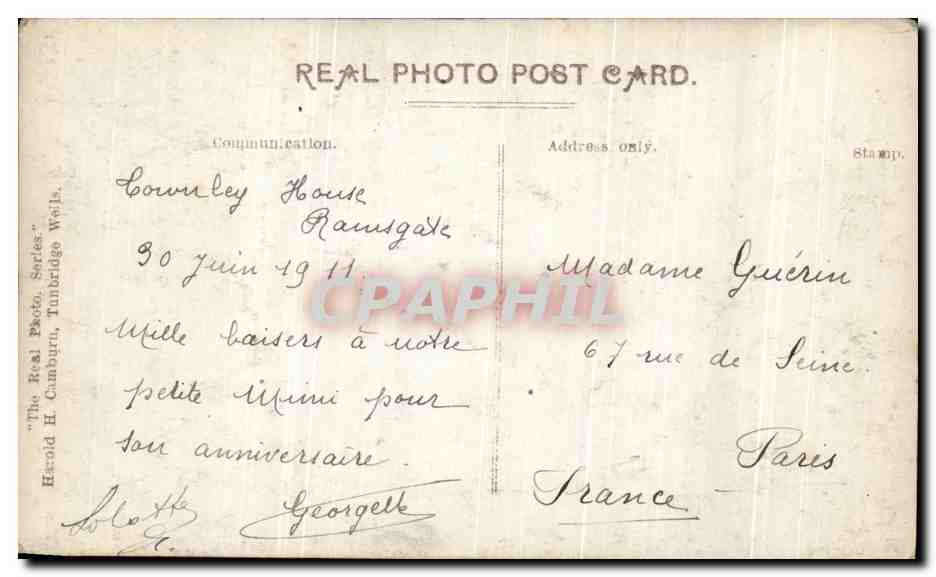 REAL PHOTO POST CARD.
Communication.
Address only.
Stamp.
Townley House
Ramsgate
30 Juin 1911.
Mille baisers à notre
petite Mimi pour
son anniversaire.
Georgette
Madame Guérin
67 rue de Seine.
Paris
France
"The Real Photo. Series."
Harold H. Camburn, Tunbridge Wells.
CPAPHIL